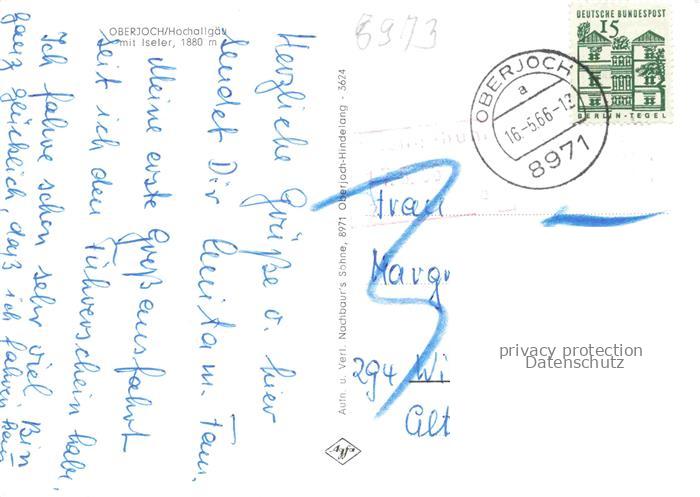 OBERJOCH/Hochallgäu
mit Iseler, 1880 m
Herzliche Grüße v. hier
sendet Dir Anita u. Fam.
Meine erste Großausfahrt
seit ich den Führerschein habe.
Ich fahre schon sehr viel. Bin
ganz glücklich, daß ich fahren kann
Aufn. u. Verl. Nachbaur's Söhne, 8971 Oberjoch-Hindelang - 3624
8973
DEUTSCHE BUNDESPOST
15
BERLIN-TEGEL
OBERJOCH
a
16.-5.66-12
8971
Frau
Margr
294 Wi
Alt
privacy protection
Datenschutz